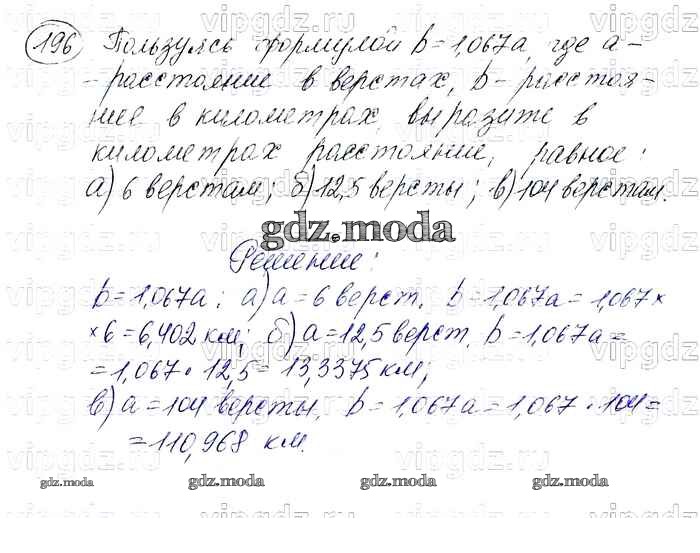 196 Пользуясь формулой b = 1,067a, где a –
– расстояние в верстах, b – расстоя-
ние в километрах, выразите в
километрах расстояние, равное:
а) 6 верстам; б) 12,5 версты; в) 104 верстам.
gdz.moda
Решение:
b = 1,067a; а) a = 6 верст, b = 1,067a = 1,067 ×
× 6 = 6,402 км; б) a = 12,5 верст, b = 1,067a =
= 1,067 · 12,5 = 13,3375 км;
в) a = 104 версты, b = 1,067a = 1,067 · 104 =
= 110,968 км.
gdz.moda gdz.moda gdz.moda gdz.moda